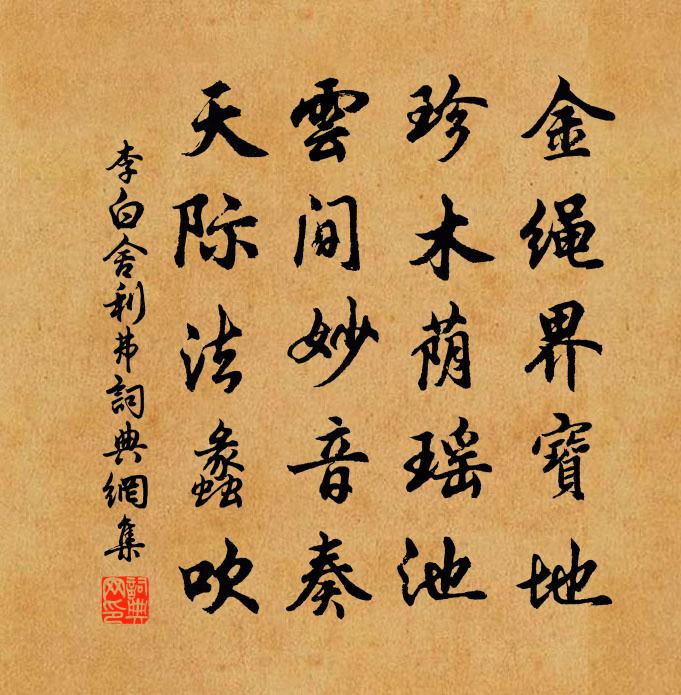 金绳界寶地
珍木荫瑶池
雲间妙音奏
天际法蠡吹
李白舍利弗詞典網集
詞典網印